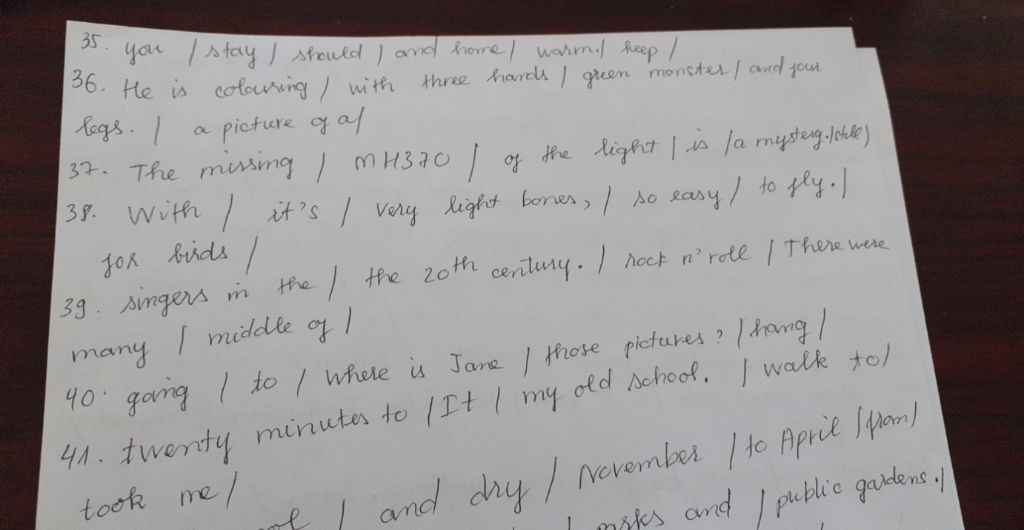 35. you / stay / should / and home / warm. / keep /
36. He is colouring / with three hands / green monster / and four
legs. / a picture of a /
37. The missing / MH370 / of the light / is / a mystery. /
38. With / it's / very light bones, / so easy / to fly. /
for birds /
39. singers in the / the 20th century. / rock n' roll / There were
many / middle of /
40. going / to / Where is Jane / those pictures? / hang /
41. twenty minutes to / It / my old school. / walk to /
took me /
/ and dry / November / to April / from /
and / public gardens. /